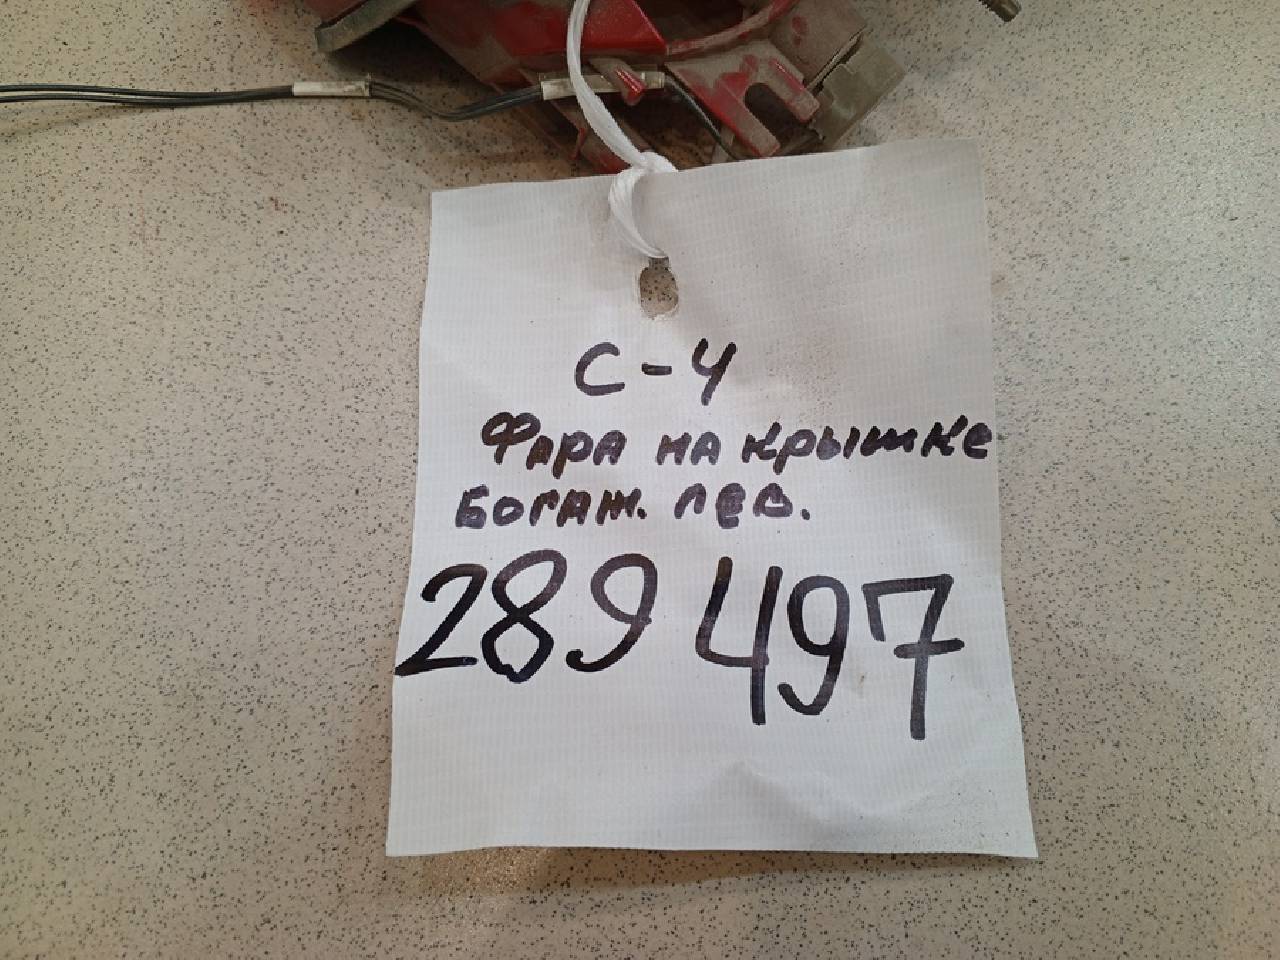 С-4
Фара на крышке
Богаж. лев.
289 497